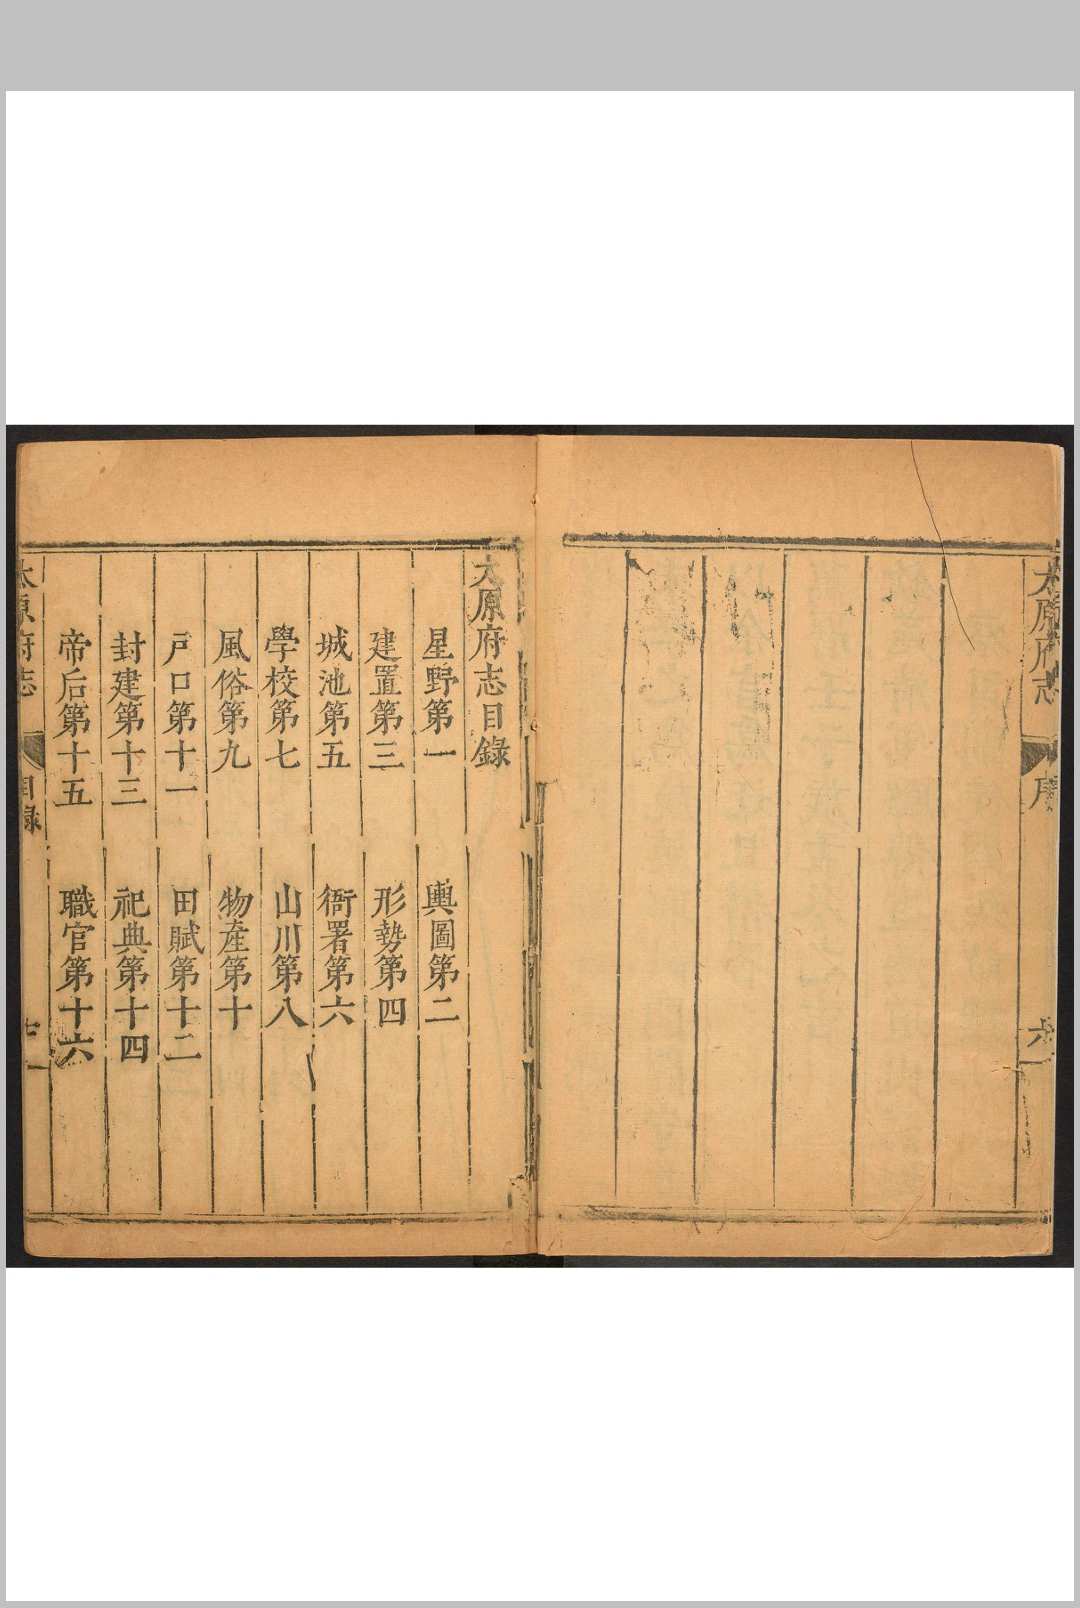 太原府志
序
六
太原府志目錄
星野第一
輿圖第二
建置第三
形勢第四
城池第五
衙署第六
學校第七
山川第八
風俗第九
物產第十
戸口第十一
田賦第十二
封建第十三
祀典第十四
帝后第十五
職官第十六
太原府志
目錄